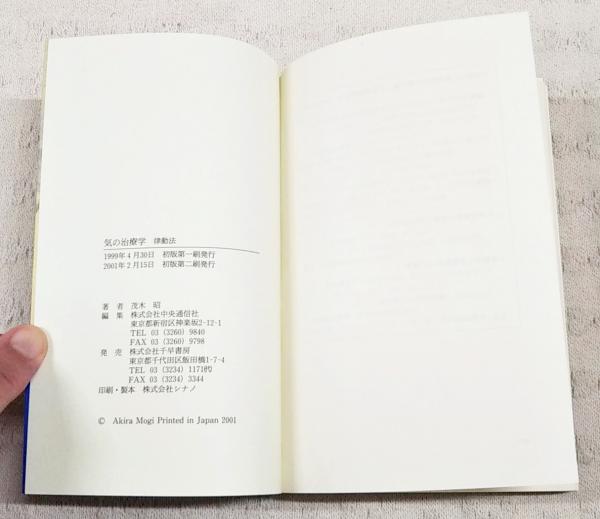 気の治療学 律動法
1999年4月30日 初版第一刷発行
2001年2月15日 初版第二刷発行
著者 茂木 昭
編集 株式会社中央通信社
東京都新宿区神楽坂2-12-1
TEL 03 (3260) 9840
FAX 03 (3260) 9798
発売 株式会社千早書房
東京都千代田区飯田橋1-7-4
TEL 03 (3234) 1171㈹
FAX 03 (3234) 3344
印刷・製本 株式会社シナノ
© Akira Mogi Printed in Japan 2001